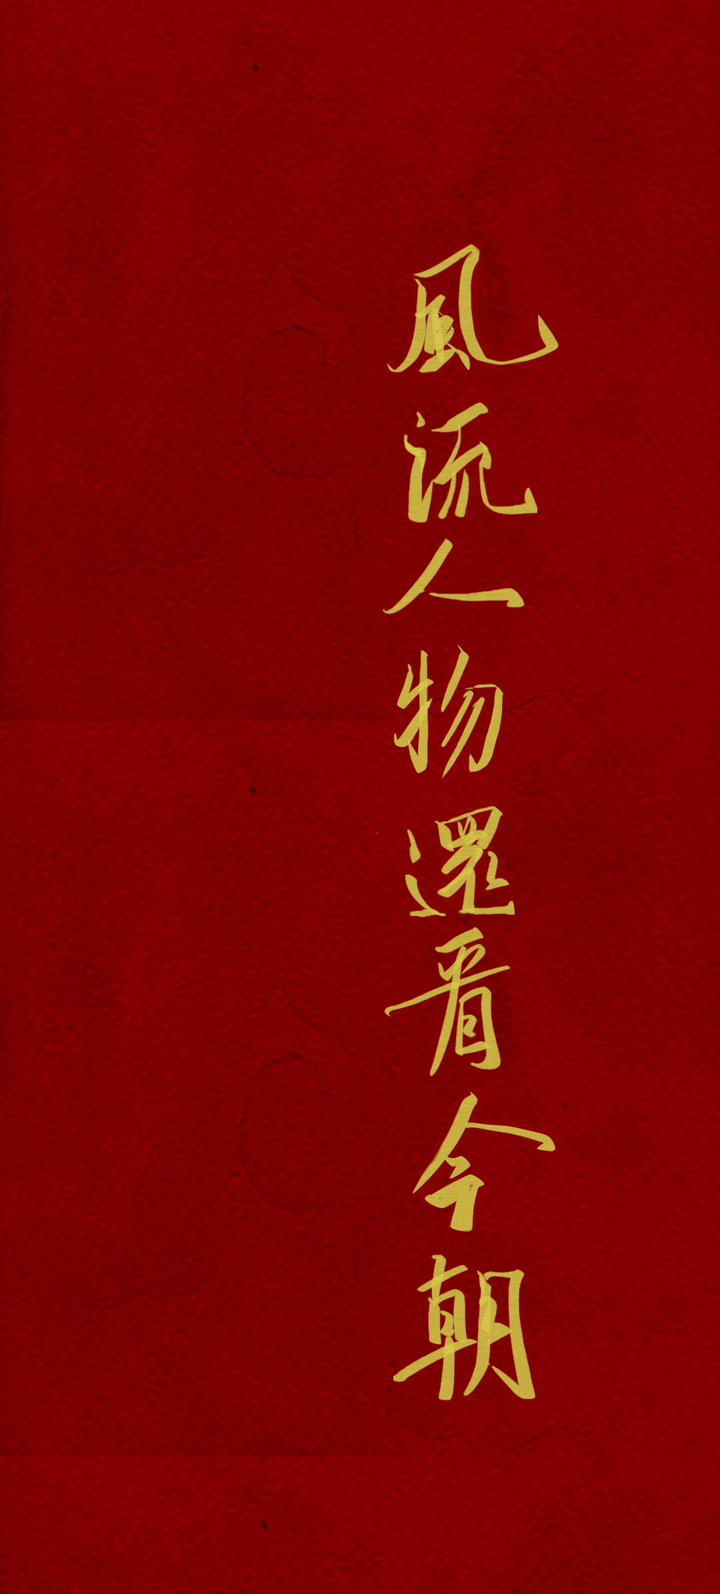 風流人物還看今朝